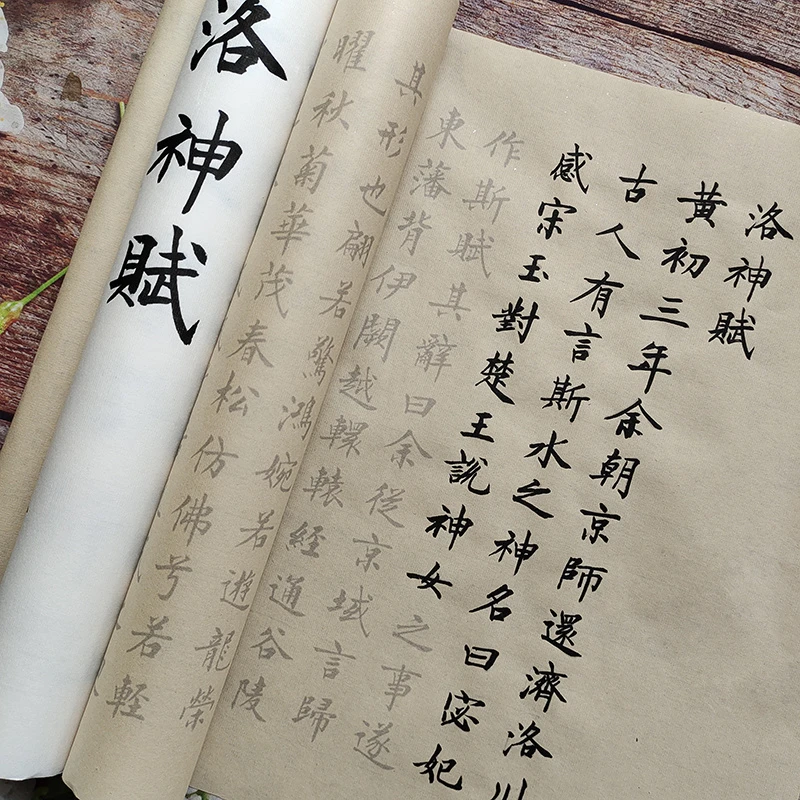 洛神賦
黄初三年余朝京師還濟洛川
古人有言斯水之神名曰宓妃
感宋玉對楚王說神女之事遂
作斯賦其辭曰余從京域言歸
東藩背伊闕越轘轅經通谷陵
其形也翩若驚鴻婉若遊龍榮
曜秋菊華茂春松仿佛兮若輕
洛神賦